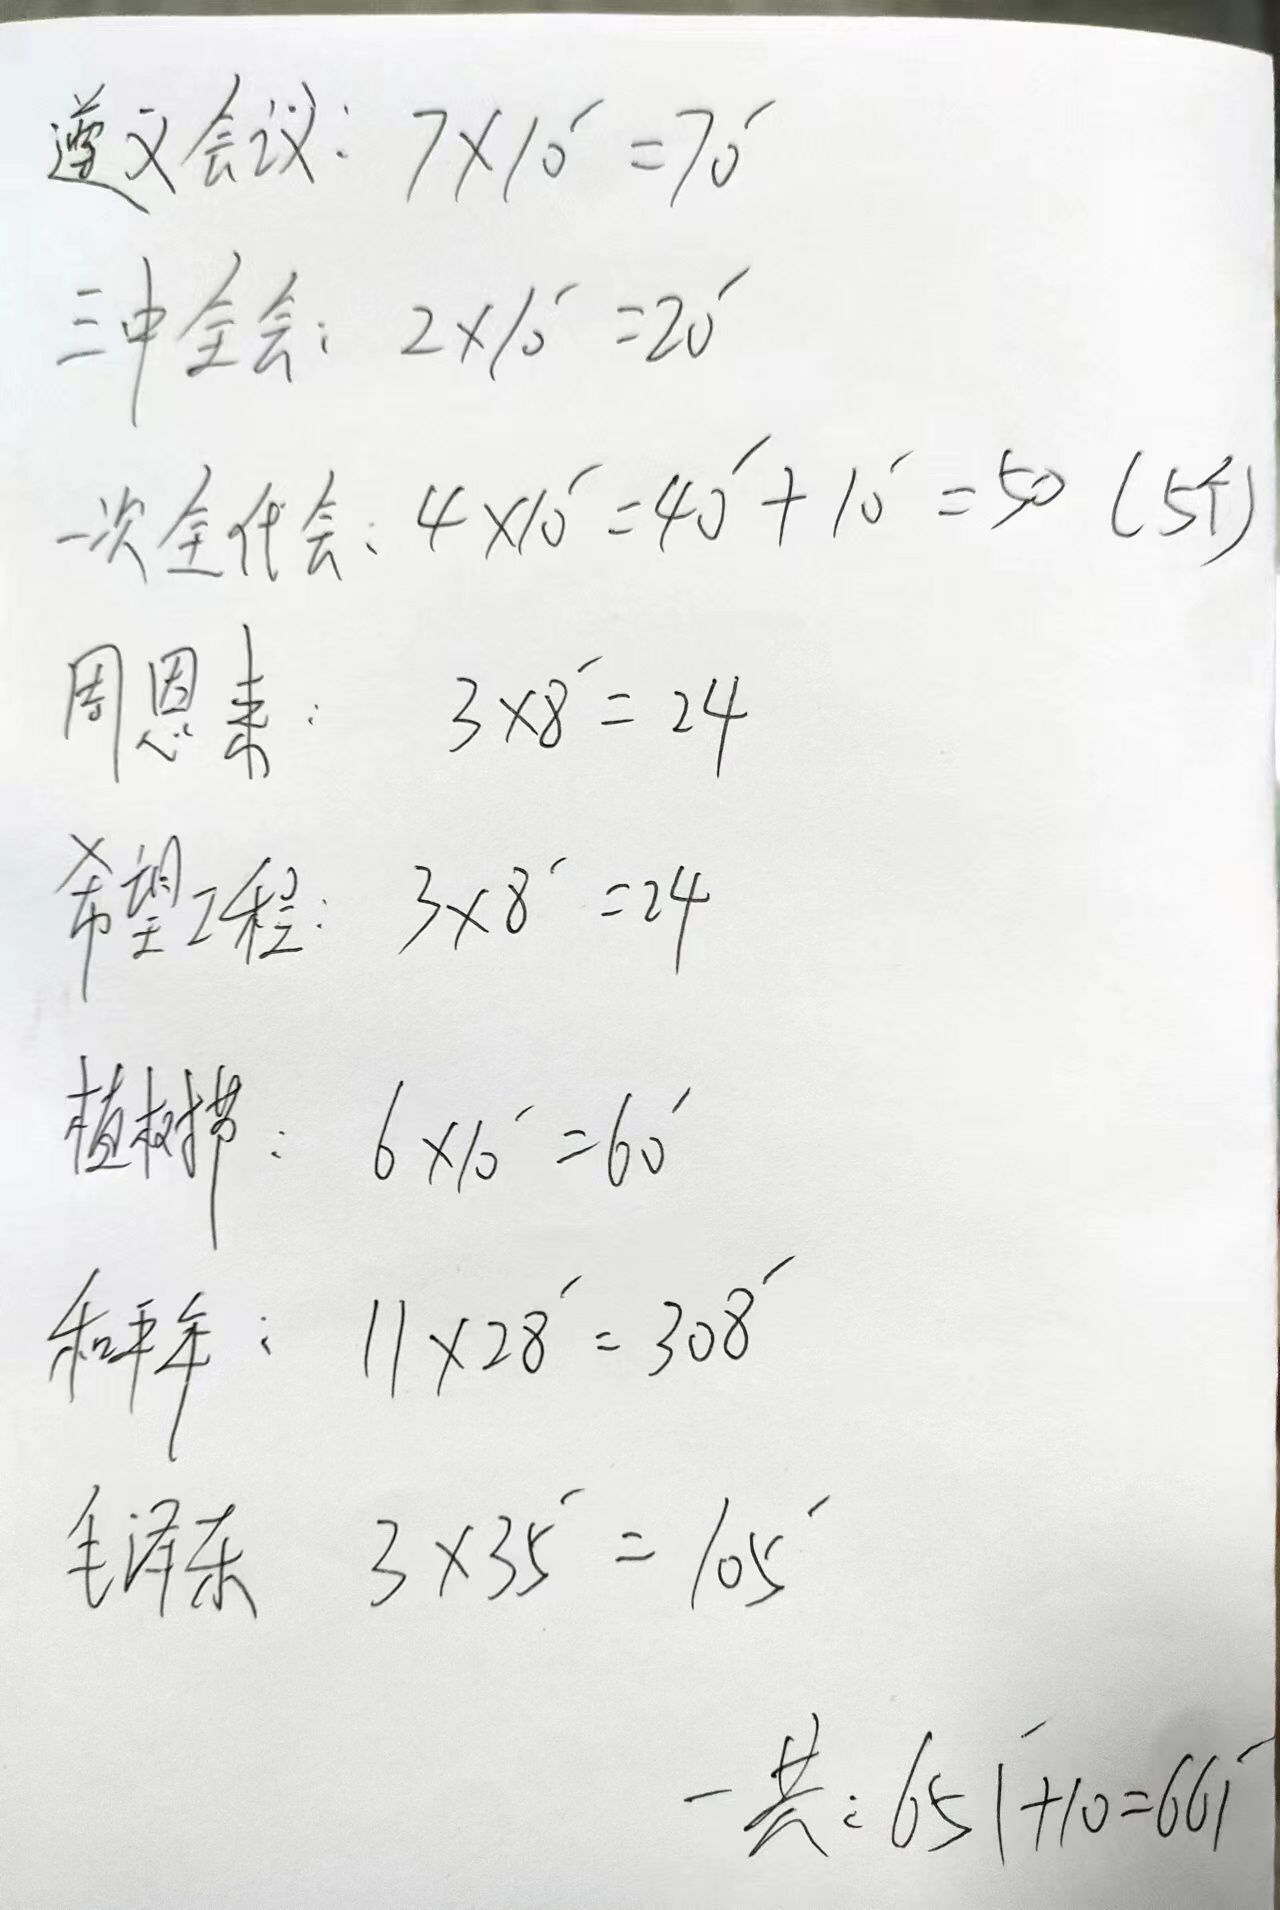 遵义会议: 7×10′=70′
三中全会: 2×10′=20′
一次全代会: 4×10′=40′+10′=50 (5个)
周恩来: 3×8′=24
希望工程: 3×8′=24
植树节: 6×10′=60′
和平年: 11×28′=308′
毛泽东 3×35′=105′
一共: 651′+10=661′